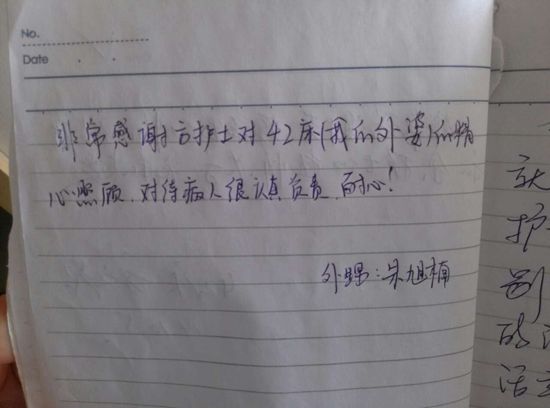 No.
Date
非常感谢方护士对42床(我的外婆)的精
心照顾,对待病人很认真负责,耐心!
外甥:朱旭楠
护
别
的
活